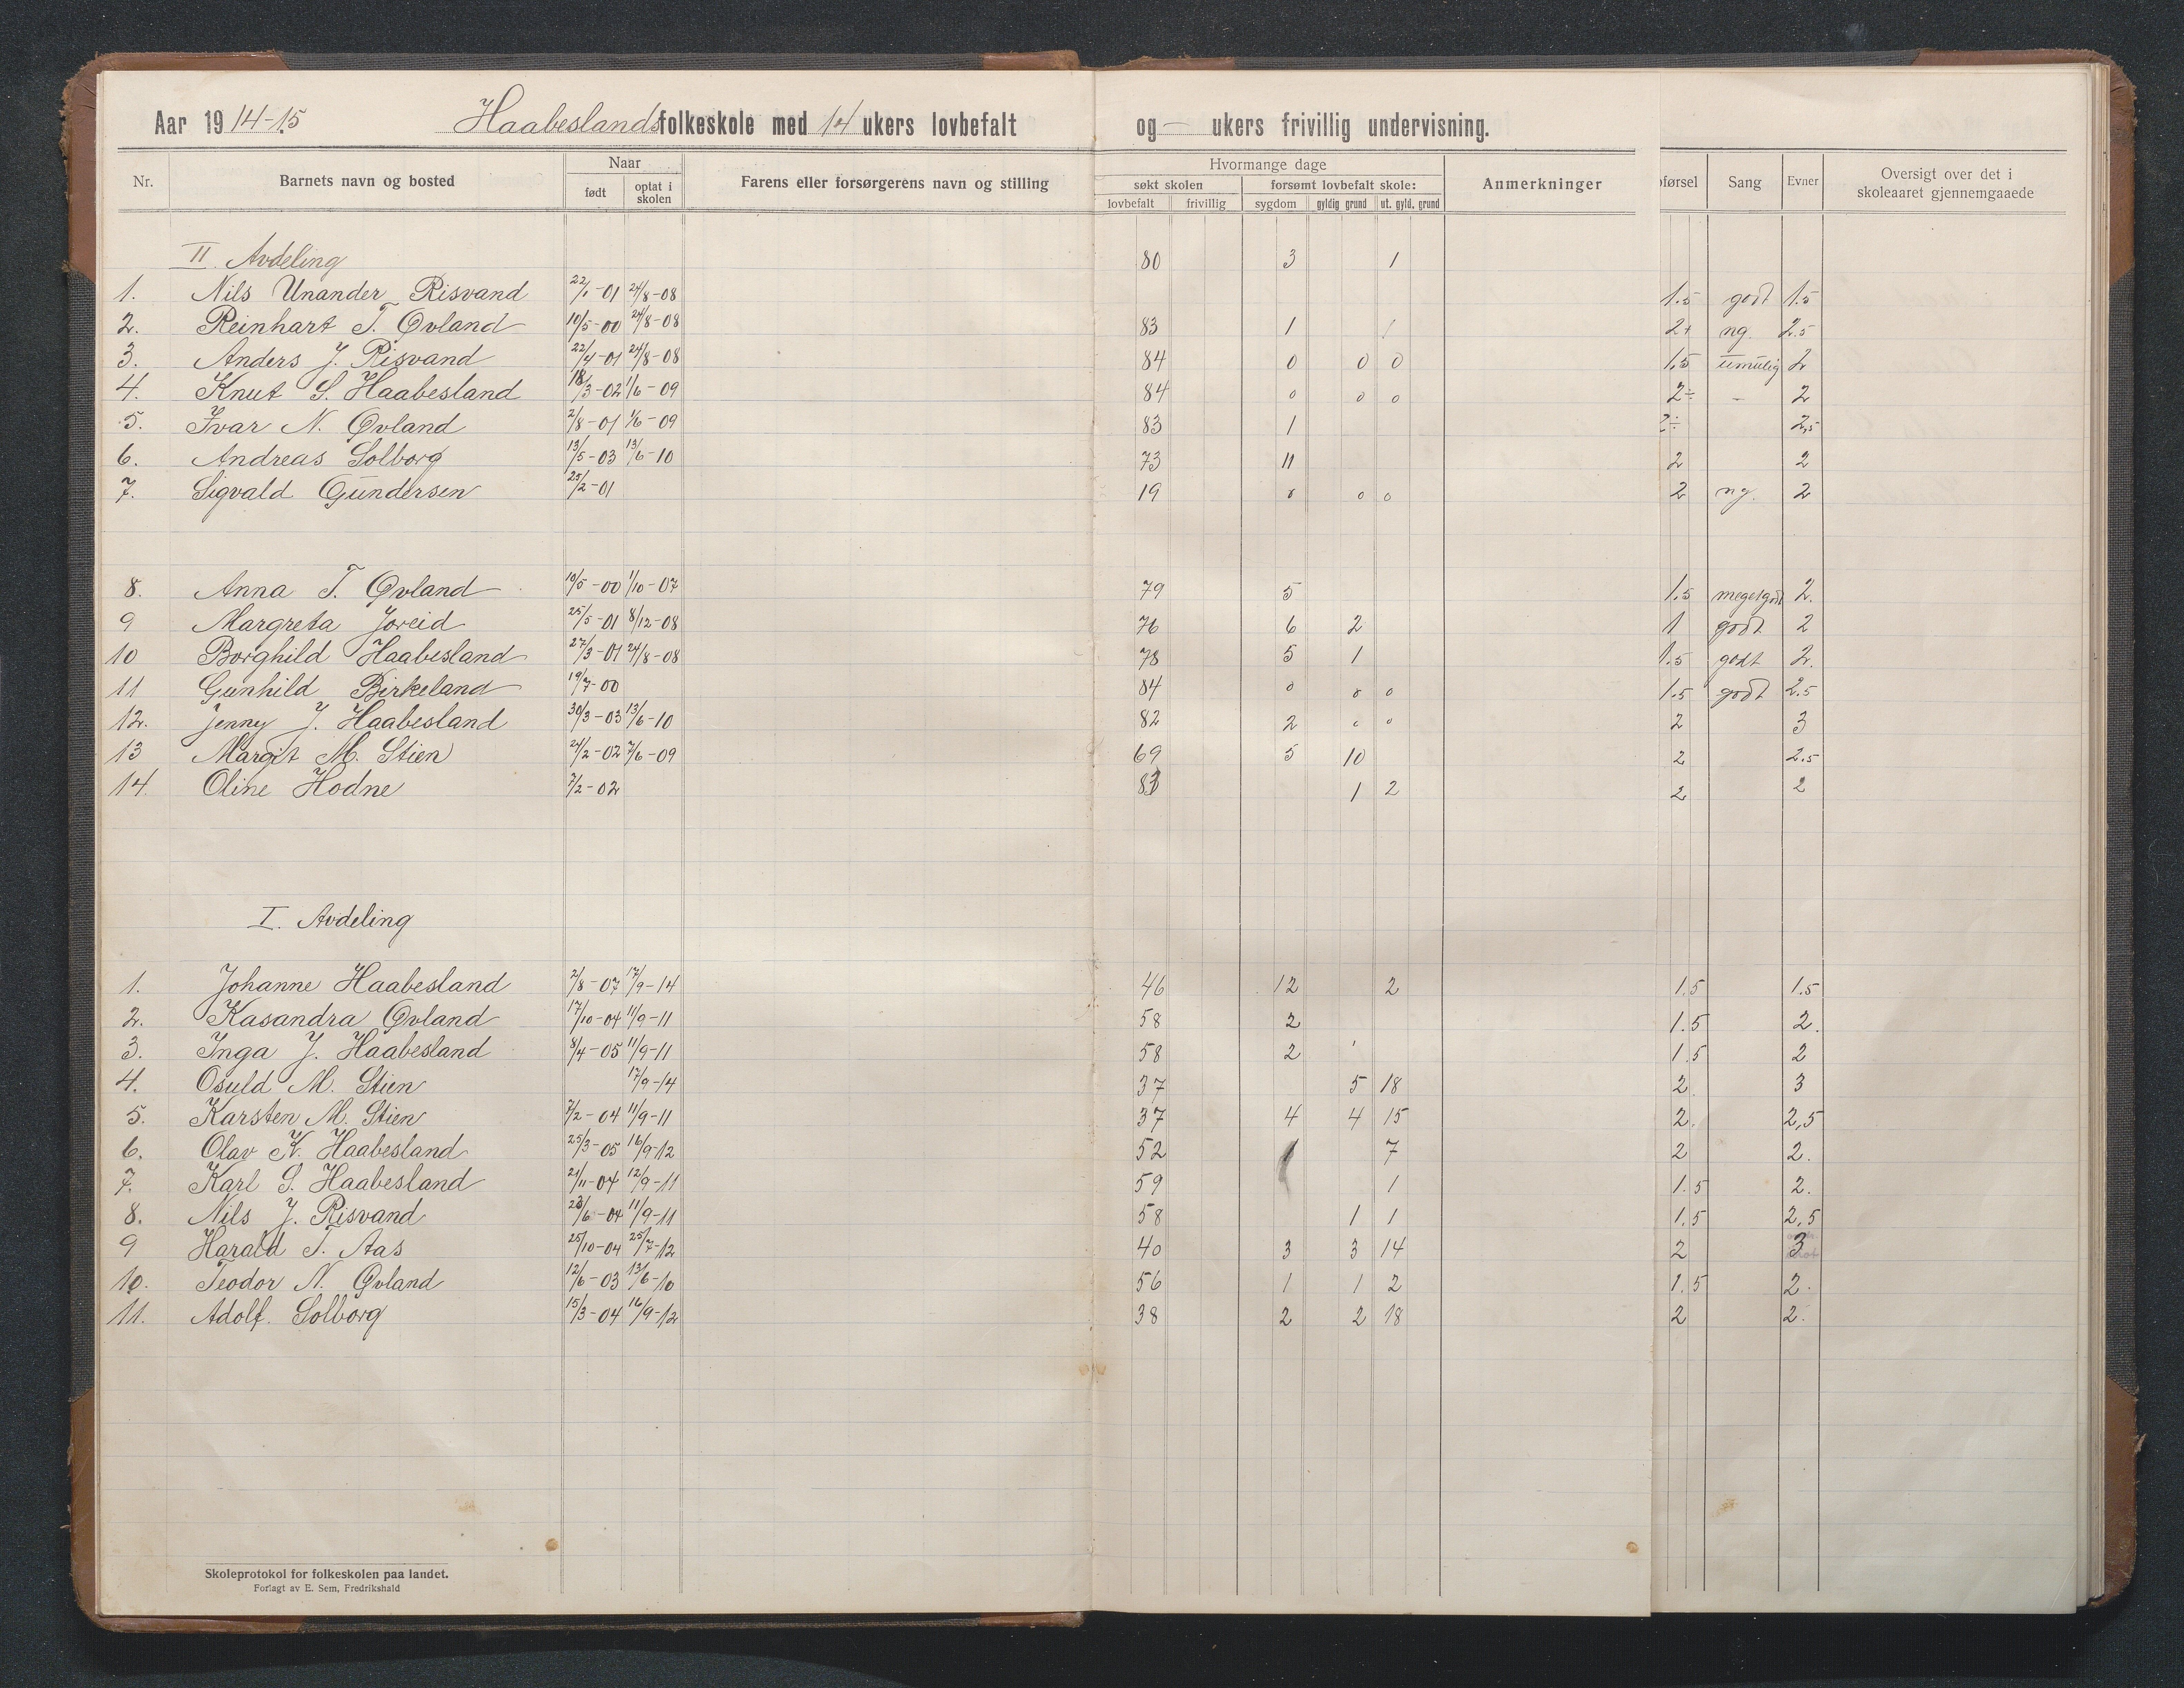 Aar 1914-15 Haabeslands folkeskole med 14 ukers lovbefalt og — ukers frivillig undervisning.
Nr. Barnets navn og bosted Naar født optat i skolen Farens eller forsørgerens navn og stilling Hvormange dage søkt skolen lovbefalt frivillig forsømt lovbefalt skole: sygdom gyldig grund ut. gyld. grund Anmerkninger oførsel Sang Evner Oversigt over det i skoleaaret gjennemgaaede
II. Avdeling 80 3 1
1. Nils Unander Risvand 22/1-01 24/8-08 1.5 godt 1.5
2. Reinhart T. Øvland 10/5-00 24/8-08 83 1 / 2+ ng. 2.5
3. Anders J. Risvand 22/4-01 24/8-08 84 0 0 0 1,5 umulig 2
4. Knut S. Haabesland 18/3-02 1/6-09 84 0 0 0 2÷ - 2
5. Ivar N. Øvland 2/8-01 1/6-09 83 1 2÷ 2,5
6. Andreas Solborg 13/5-03 13/6-10 73 11 2 2
7. Sigvald Gundersen 25/2-01 19 0 0 0 2 ng. 2
8. Anna T. Øvland 10/5-00 1/10-07 79 5 1.5 megetgodt 2.
9 Margreta Joreid 25/5-01 8/12-08 76 6 2 1 godt 2
10 Borghild Haabesland 27/3-01 24/8-08 78 5 1 1.5 godt 2.
11 Gunhild Birkeland 19/7-00 84 0 0 0 1.5 godt 2.5
12. Jenny J. Haabesland 30/3-03 13/6-10 82 2 0 0 2 3
13 Margit M. Stien 24/2-02 7/6-09 69 5 10 2 2.5
14. Oline Hodne 7/2-02 1 2 2 2
I. Avdeling
1. Johanne Haabesland 2/8-07 17/9-14 46 12 2 1.5 1.5
2. Kasandra Øvland 17/10-04 11/9-11 58 2 1.5 2.
3. Inga J. Haabesland 8/4-05 11/9-11 58 2 1.5 2
4. Osuld M. Stien 17/9-14 37 5 18 2. 3
5. Karsten M. Stien 7/2-04 11/9-11 37 4 4 15 2. 2,5
6. Olav K. Haabesland 25/3-05 16/9-12 52 1 7 2 2.
7. Karl S. Haabesland 21/11-04 12/9-11 59 1 1.5 2.
8. Nils J. Risvand 23/6-04 11/9-11 58 1 1 1,5 2,5
9 Harald T. Aas 25/10-04 25/7-12 40 3 3 14 2 3
10. Teodor N. Øvland 12/6-03 13/6-10 56 1 1 2 1.5 2.
11. Adolf. Solborg 15/3-04 16/9-12 38 2 2 18 2 2.
Skoleprotokol for folkeskolen paa landet.
Forlagt av E. Sem, Fredrikshald